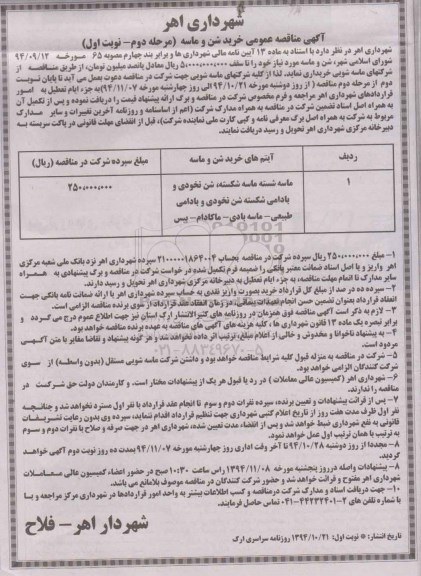 شهرداری اهر
آگهی مناقصه عمومی خرید شن و ماسه (مرحله دوم- نوبت اول)
شهرداری اهر در نظر دارد با استناد به ماده ۱۳ آیین نامه مالی شهرداری ها و برابر بند چهارم مصوبه ۶۵ مورخه ۹۴/۰۹/۱۲
شورای اسلامی شهر، شن و ماسه مورد نیاز خود را تا سقف ۵،۰۰۰،۰۰۰،۰۰۰ ریال معادل پانصد میلیون تومان، از طریق مناقصه از
شرکتهای ماسه شویی خریداری نماید. لذا از کلیه شرکتهای ماسه شویی جهت شرکت در مناقصه دعوت بعمل می آید تا پایان نوبت
دوم از مرحله دوم مناقصه ( از روز دوشنبه مورخه ۹۴/۱۰/۲۱ الی روز چهارشنبه مورخه ۹۴/۱۱/۰۷) به جزء ایام تعطیل به امور
قراردادهای شهرداری اهر مراجعه و فرم مخصوص شرکت در مناقصه و برگ ارائه پیشنهاد قیمت را دریافت نموده و پس از تکمیل آن
به همراه اصل اسناد تضمین شرکت در مناقصه به همراه مدارک شرکت (اعم از اساسنامه و روزنامه آخرین تغییرات و سایر مدارک
مربوط به شرکت به همراه اصل برگ معرفی نامه و کپی کارت ملی نماینده شرکت)، قبل از انقضای مهلت قانونی در پاکت سربسته به
دبیرخانه مرکزی شهرداری اهر تحویل و رسید دریافت نمایند.
ردیف آیتم های خرید شن و ماسه مبلغ سپرده شرکت در مناقصه (ریال)
۱ ماسه شسته ماسه شکسته، شن نخودی و ۲۵۰،۰۰۰،۰۰۰
بادامی شکسته شن نخودی و بادامی
طبیعی- ماسه بادی- ماکادام- بیس
۱- مبلغ ۲۵۰،۰۰۰،۰۰۰ ریال سپرده شرکت در مناقصه بحساب ۲۱۰۰۰۰۰۱۸۶۴۰۰۴ سپرده شهرداری اهر نزد بانک ملی شعبه مرکزی
اهر واریز و یا اصل اسناد ضمانت معتبر بانکی را ضمیمه فرم تکمیل شده درخواست شرکت در مناقصه و برگ پیشنهادی به همراه
سایر مدارک تا اتمام مهلت مناقصه، به جزء ایام تعطیل به دبیرخانه مرکزی شهرداری اهر تحویل و رسید دارند.
۲- سپرده ده در صد از مبلغ کل قرارداد خرید بصورت واریز نقدی به حساب سپرده شهرداری اهر یا ارائه ضمانت نامه بانکی جهت
انعقاد قرارداد بعنوان تضمین حسن انجام تعهدات پیمانی، در زمان انعقاد عقد قرارداد، از سوی برنده مناقصه الزامی است.
۳- لازم به ذکر است آگهی مناقصه فوق همزمان در روزنامه های کثیرالانتشار استان نیز جهت اطلاع عموم درج می گردد و
برابر تبصره یک ماده ۱۳ قانون شهرداری ها ، کلیه هزینه های آگهی های مناقصه به عهده برنده مناقصه خواهد بود.
۴- به پیشنهاد ناخوانا و مخدوش و خالی از اعلام مبلغ، ترتیب اثر داده نخواهد شد و هر گونه پیشنهاد و تقاضا مغایر با متن آگهی
مردود است.
۵- شرکت در مناقصه به منزله قبول کلیه شرایط مناقصه خواهد بود و داشتن شرکت ماسه شویی مستقل (بدون واسطه) از سوی
شرکت کنندگان الزامی خواهد بود.
۶- شهرداری اهر (کمیسیون عالی معاملات ) در رد یا قبول هر یک از پیشنهادات مختار است. و کارمندان دولت حق شرکت در
مناقصه را ندارند.
۷- پس از قرائت پیشنهادات و تعیین برنده، سپرده نفرات دوم و سوم تا انجام عقد قرارداد با نفر اول مسترد نخواهد شد و چنانچه
نفر اول ظرف مدت هفت روز از تاریخ اعلام کتبی شهرداری جهت تنظیم قرارداد اقدام ننماید، سپرده وی بدون رعایت تشریفات
قانونی به نفع شهرداری ضبط خواهد شد و پس از انقضاء مدت تعیین شده، شهرداری اهر در جهت صرفه و صلاح با نفرات دوم و سوم
به ترتیب با همان ترتیب اول عمل خواهد نمود.
۸- مجددا از روز دوشنبه ۹۴/۱۰/۲۸ تا آخر وقت اداری روز چهارشنبه مورخه ۹۴/۱۱/۰۷ بمدت ده روز نوبت دوم آگهی خواهد
گردید.
۸- پیشنهادات واصله در روز پنجشنبه مورخه ۱۳۹۴/۱۱/۰۸ راس ساعت ۱۰:۳۰ صبح در حضور اعضاء کمیسیون عالی معاملات
شهرداری اهر مفتوح و قرائت خواهد شد و حضور شرکت کنندگان در مناقصه موصوف بلامانع می باشد.
۱۰- جهت دریافت اسناد و مدارک شرکت در مناقصه و کسب اطلاعات بیشتر به واحد امور قراردادها در شهرداری مرکز مراجعه و یا
با شماره تلفن های ۲-۴۴۲۳۲۴۰۱-۰۴۱ تماس حاصل فرمایند.
شهردار اهر- فلاح
تاریخ انتشار: * نوبت اول: ۱۳۹۴/۱۰/۲۱ روزنامه سراسری ارک